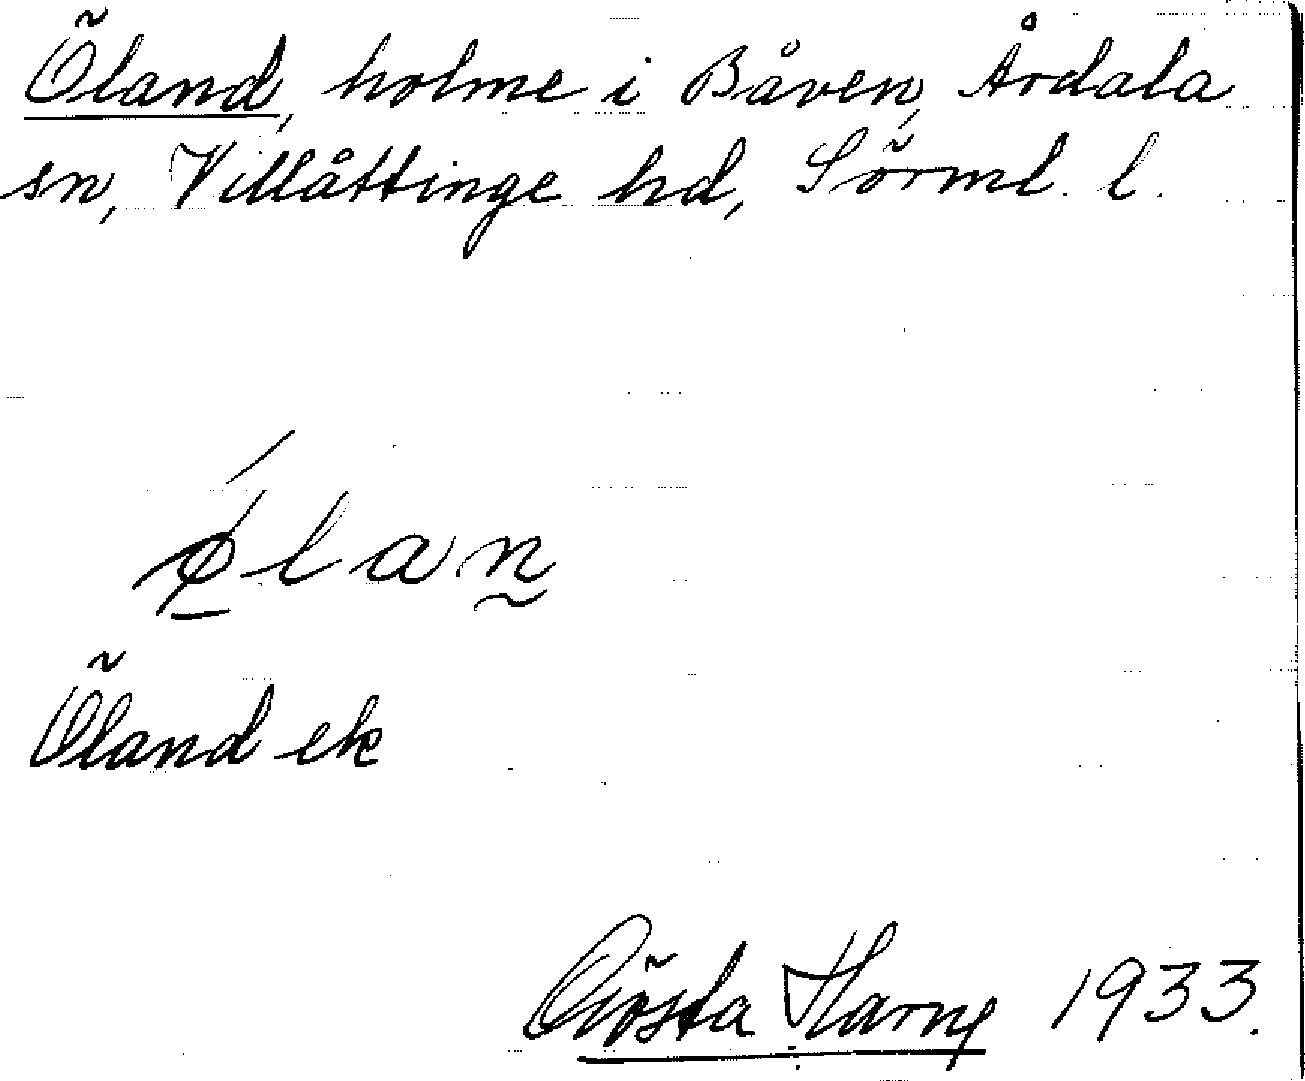 Öland, holme i Båven, Årdala
sn, Villåttinge hd, Sörml. l.
ǿlan
Öland ek
Gösta Harng 1933.